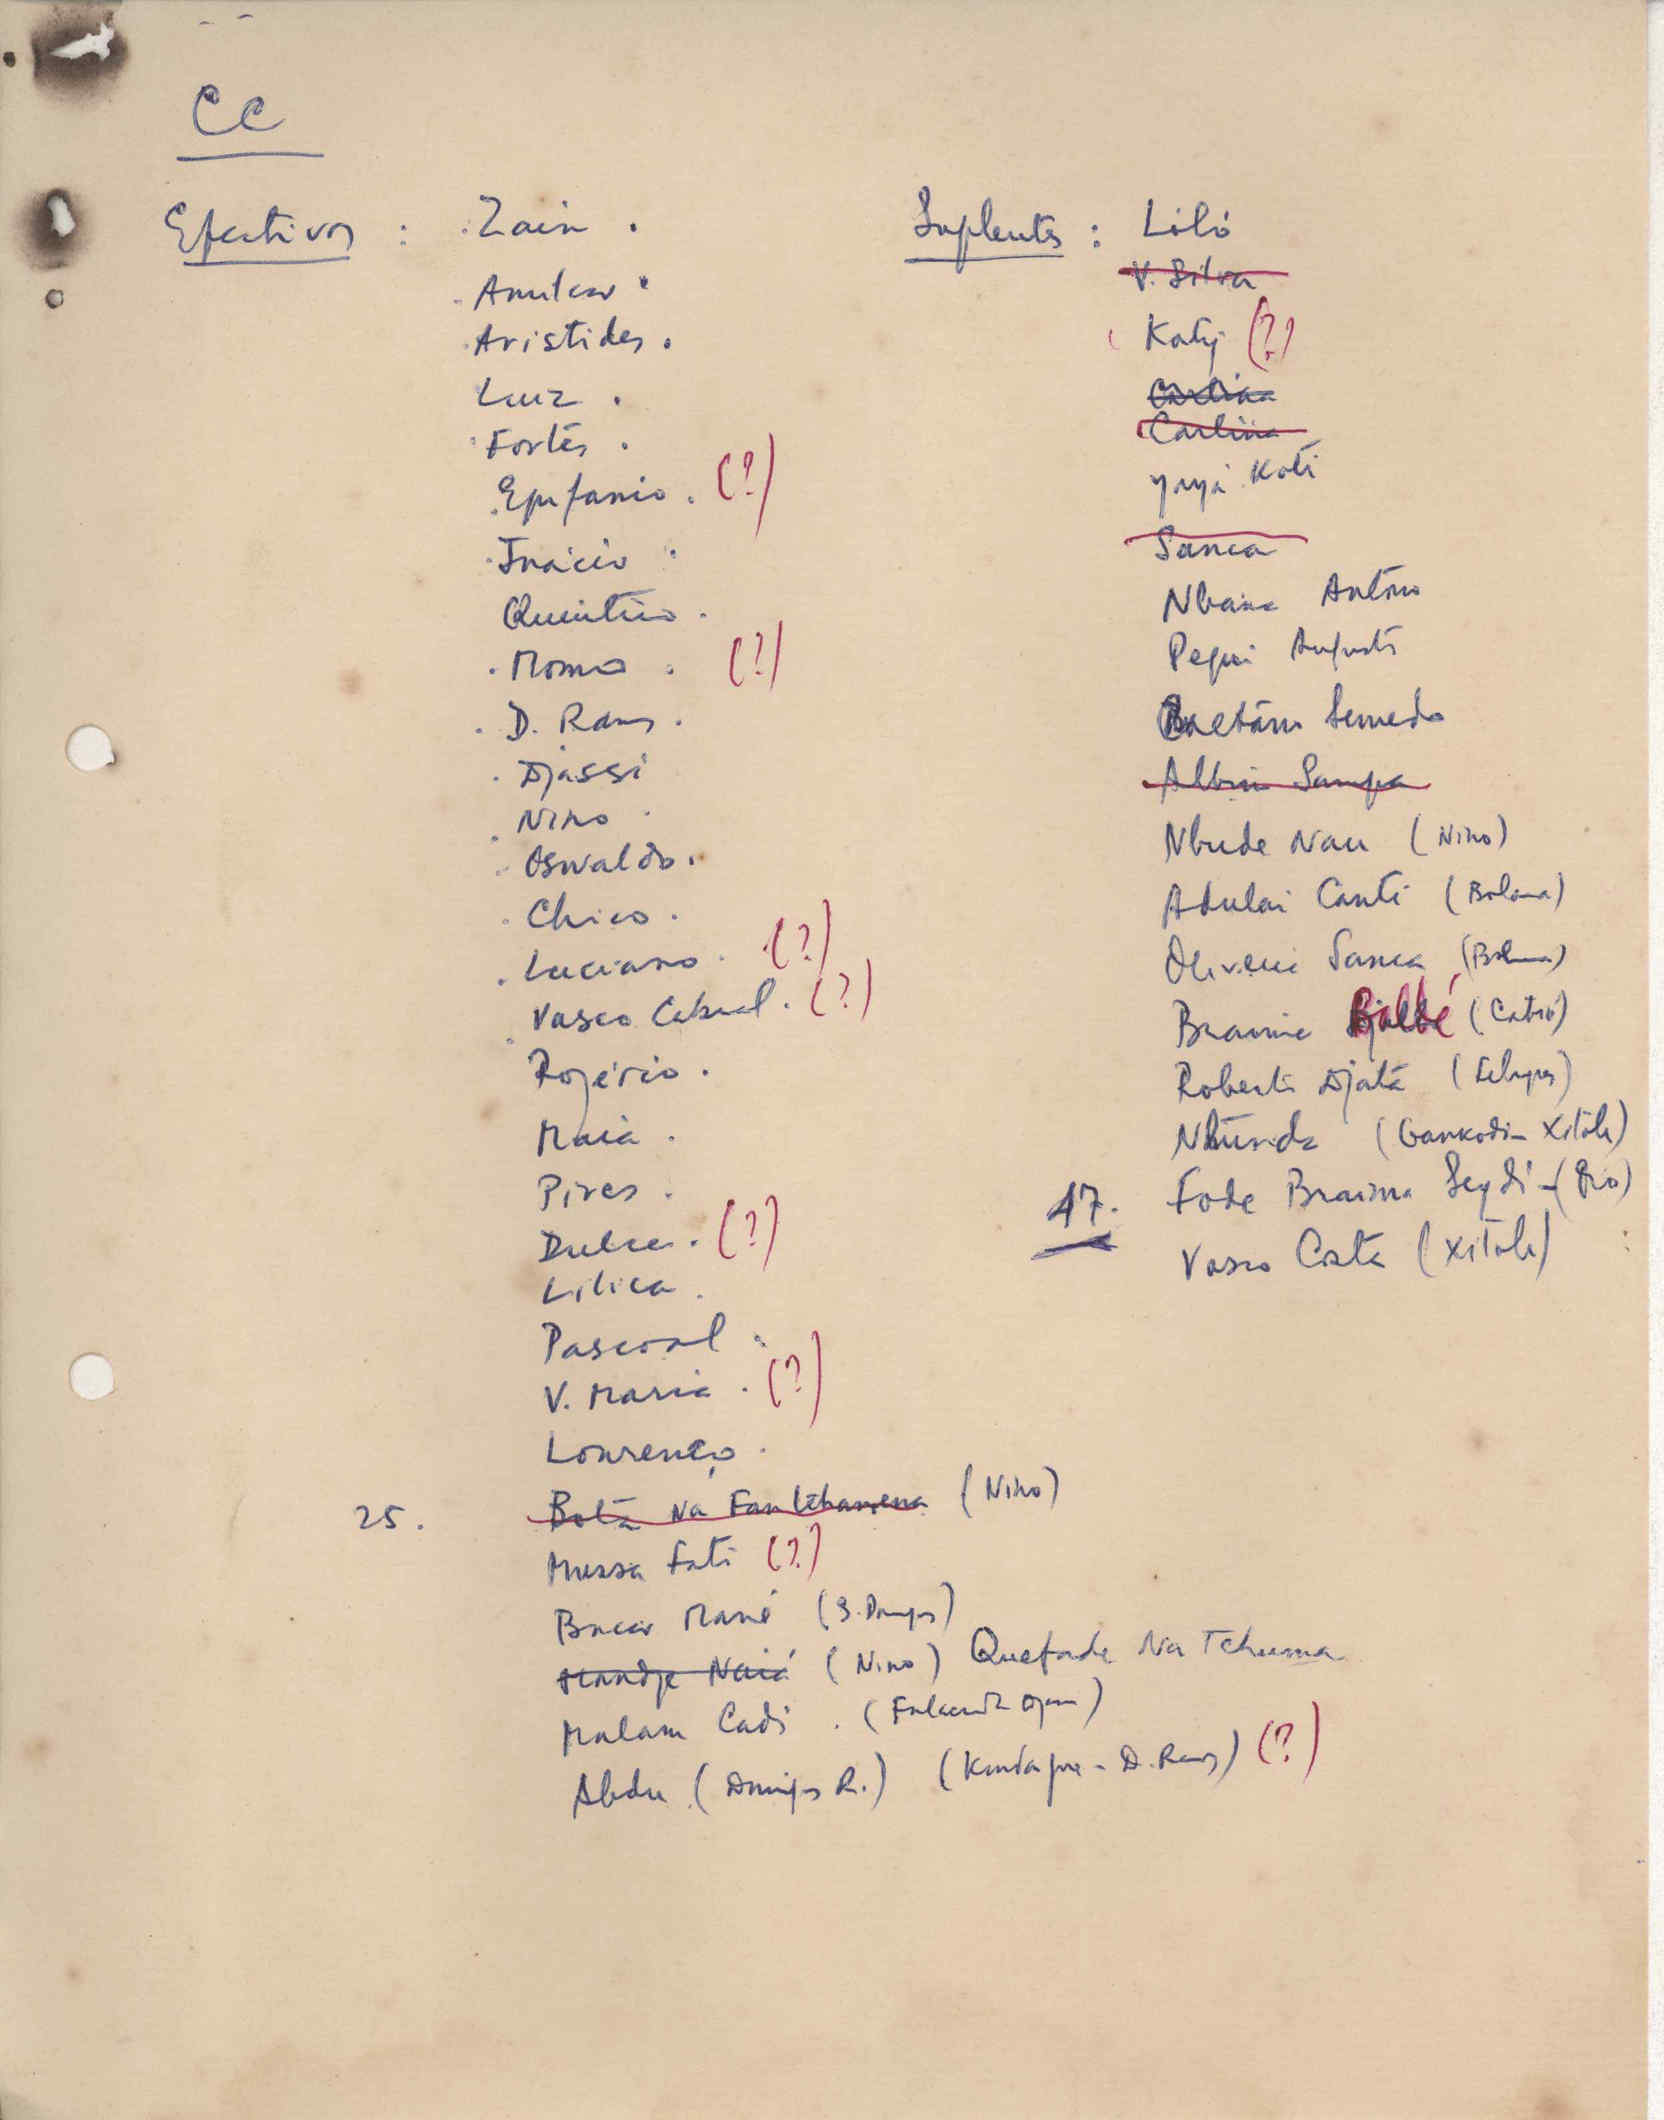 CC
Efectivos :
Zain .
Amilcar .
Aristides .
Luiz .
Fortes .
Epifanio . (?)
Inácio .
Quintino .
Momo . (?)
D. Ramos .
Djassi
Nino .
Osvaldo .
Chico .
Luciano . (?)
Vasco Cabral . (?)
Rogério .
Maia .
Pires .
Dulce . (?)
Lilica .
Pascoal .
V. Maria . (?)
Lourenço .
25. Botá Na Fantchamena (Nino)
Mussa Fati (?)
Bucar Mané (S. Domingos)
Naiá (Nino) Quefade Na Tchuma
Malam Cadi . (
Abdu (Domingos R.) ( - D. Ramos) (?)
Suplentes : Liló
V. Silva
Katy (?)
Carlina
Carlina
Yaya Koti
Sanca
Nbana António
Pequi Augusto
Caetano Semedo
Albino Sampa
Nbude Nau (Nino)
Adulai Canti (Bolama)
Sanca (Bolama)
Braima (Catió)
Roberto Djatá
(Xitole)
17. Fode Braima Seydi - (Oio)
Vasco Costa (Xitole)